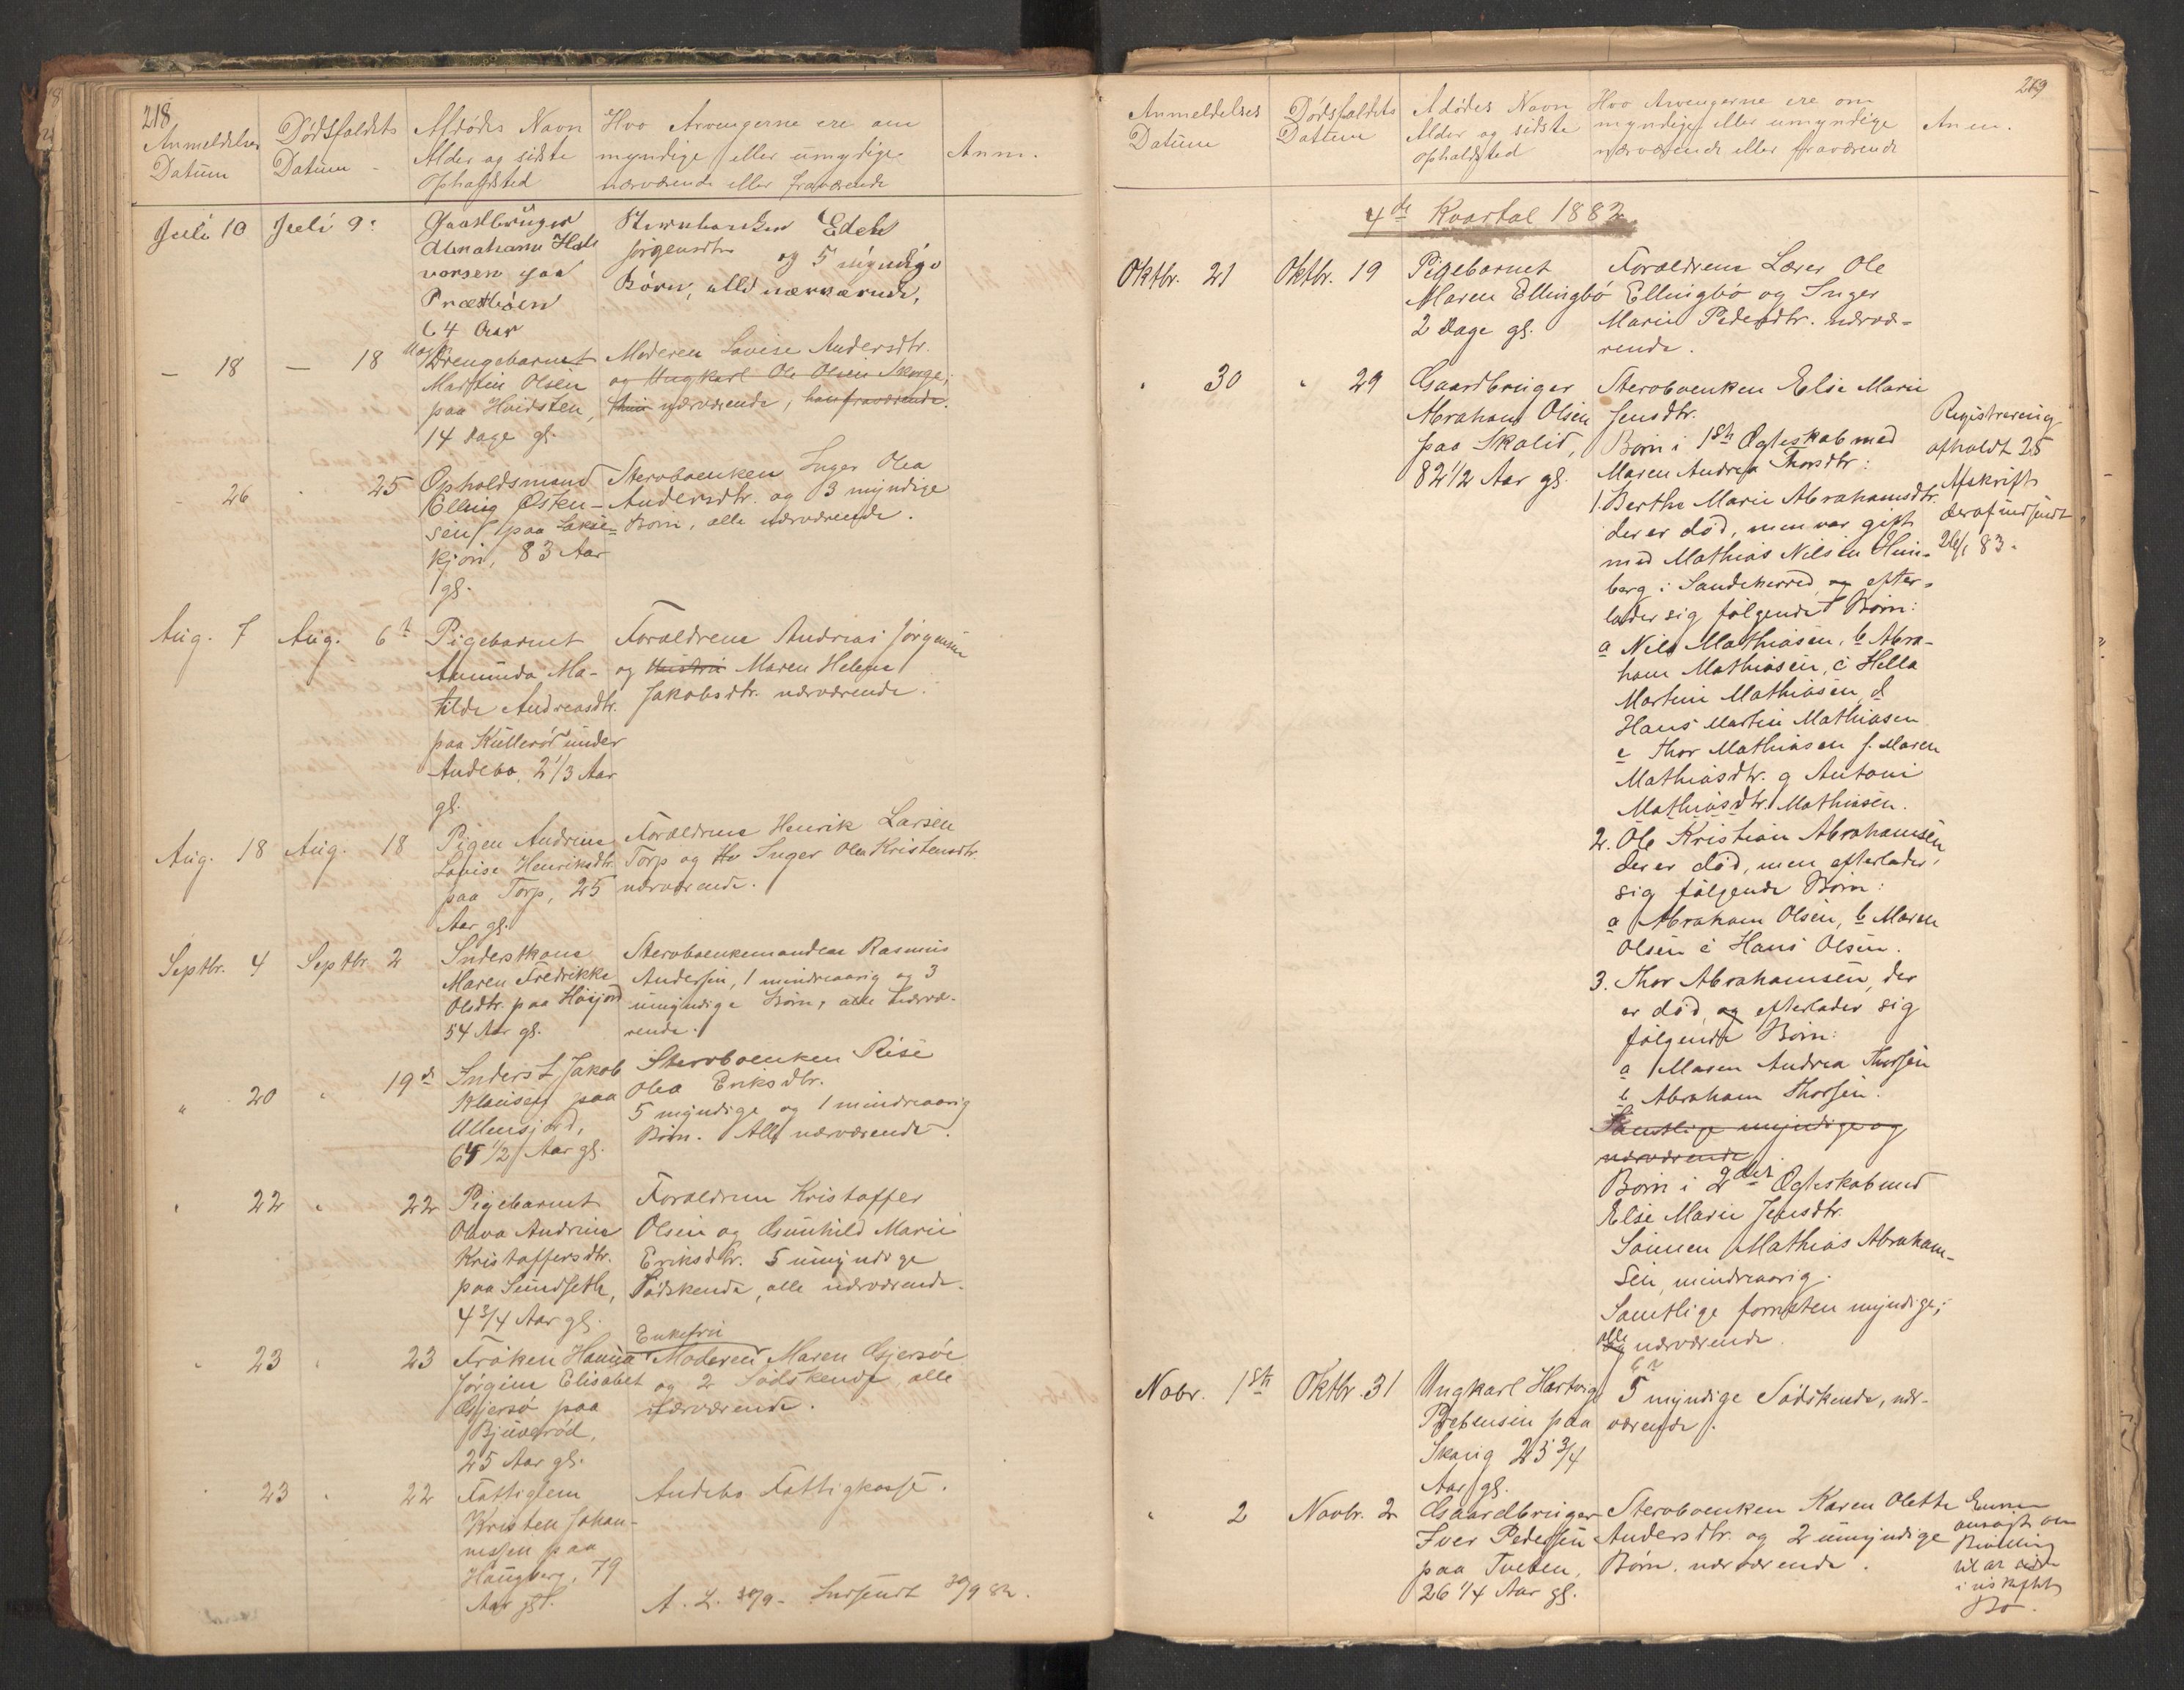 218.
Anmeldelses Datum
Dødsfaldets Datum
Afdødes Navn
Alder og sidste
Opholdsted
Hvo Arvengerne ere om
myndige eller umyndige
nærværende eller fraværende
Anm.
Juli 10 Juli 9.
Gaardbruger
Abraham Hal-
vorsen paa
Præstbøen
64 Aar
Stervboenken Edel
Jørgensdtr. og 5 myndige
Børn, alle nærværende.
— 18 — 18
Drengebarnet
Martin Olsen
paa Hvidsten,
14 Dage gl.
Moderen Lovise Andersdtr.
og Ungkarl Ole Olsen Skorge;
hun nærværende, han fraværende.
" 26 " 25
Opholdsmand
Elling Østen-
sen paa
kjøn, 83 Aar
gl.
Stervboenken Inger Olea
Andersdtr. og 3 myndige
Børn, alle nærværende.
Aug. 7 Aug. 6
Pigebarnet
Amunda Ma-
tilde Andreasdtr.
paa Kullerød under
Andebo, 2 1/3 Aar
gl.
Forældrene Andreas Jørgensen
og Hustru Maren Helene
Jakobsdtr. nærværende.
Aug. 18 Aug. 18
Pigen Andrine
Lovise Henriksdtr.
paa Torp, 25
Aar gl.
Forældrene Henrik Larsen
Torp og Inger Olea Kristensdtr.
nærværende.
Septbr. 4 Septbr. 2
Inderstkone
Maren Fredrikke
Olsdtr. paa Høijord
54 Aar gl.
Stervboenkemanden Rasmus
Andersen, 1 mindreaarig og 3
umyndige Børn, alle nærvæ-
rende.
" 20 " 19de
Inderst Jakob
Klausen paa
Ullensjord,
64 1/2 Aar gl.
Stervboenken Rise
Olea Eriksdtr.
5 myndige og 1 mindreaarig
Børn. Alle nærværende.
" 22 " 22
Pigebarnet
Olava Andrine
Kristoffersdtr.
paa Sundseth,
4 3/4 Aar gl.
Forældrene Kristoffer
Olsen og Gunhild Marie
Eriksdtr. 5 umyndige
Sødskende, alle nærværende.
" 23 " 23
Frøken Hanna
Jørgine Elisabet
Gjersø paa
Bjuerød,
25 Aar gl.
Enkefru
Moderen Maren Gjersøe
og 2 Sødskende, alle
nærværende.
" 23 " 22
Fattiglem
Kristen Johan-
nessen paa
Haugberg, 79
Aar gl.
Andebo Fattigkasse.
A. L. 30/9 - Indsendt 30/9 82.
219
Anmeldelses
Datum
Dødsfaldets
Datum
Adødes Navn
Alder og sidste
Opholdsted
Hvo Arvengerne ere om
myndige eller umyndige
nærværende eller fraværende
Anm.
4de Kvartal 1882
Oktbr. 21 Oktbr. 19
Pigebarnet
Maren Ellingbö
2 Dage gl.
Forældrene Lærer Ole
Ellingbö og Inger
Marie Pedersdtr. nærvæ-
rende.
" 30 " 29
Gaardbruger
Abraham Olsen
paa Skalid,
82 1/2 Aar gl.
Stervboenken Else Marie
Jensdtr.
Børn i 1ste Ægteskab med
Maren Andrea Thorsdtr:
1. Berthe Marie Abrahamsdtr.
der er død, men var gift
med Mathias Nilsen Hem-
berg i Sandeherred, og efter-
lader sig følgende Børn:
a Nils Mathiasen, b Abra-
ham Mathiasen, c Hella
Martine Mathiasen, d
Hans Martin Mathiasen
e Thor Mathiasen f. Maren
Mathiasdtr. g Antoni
Mathiasdtr. Mathiasen.
2. Ole Kristian Abrahamsen
der er død, men efterlader
sig følgende Børn:
a Abraham Olsen, b Maren
Olsen c Hans Olsen.
3. Thor Abrahamsen, der
er død, og efterlader sig
følgende Børn:
a Maren Andrea Thorsen
b Abraham Thorsen.
Samtlige myndige og
nærværende
Børn i 2det Ægteskab med
Else Marie Jensdtr.
Sönnen Mathias Abraham-
sen, mindreaarig.
Samtlige fornæten myndige;
alle nærværende.
Registrering
afholdt 25
Afskrift
deraf indsendt
26/1 83.
Nobr. 1ste Oktbr. 31
Ungkarl Hartvig
Prebensen paa
Skaug 25 3/4
Aar gl.
5 myndige Sødskende, nær-
værende.
" 2 Novbr. 2
Gaardbruger
Iver Pedersen
paa Tveten,
26 1/4 Aar gl.
Stervboenken Karen Olette
Andersdtr. og 2 umyndige
Børn. nærværende.
Enken
ansøgt om
Bevilling
til at sidde
i uskiftet
Bo.